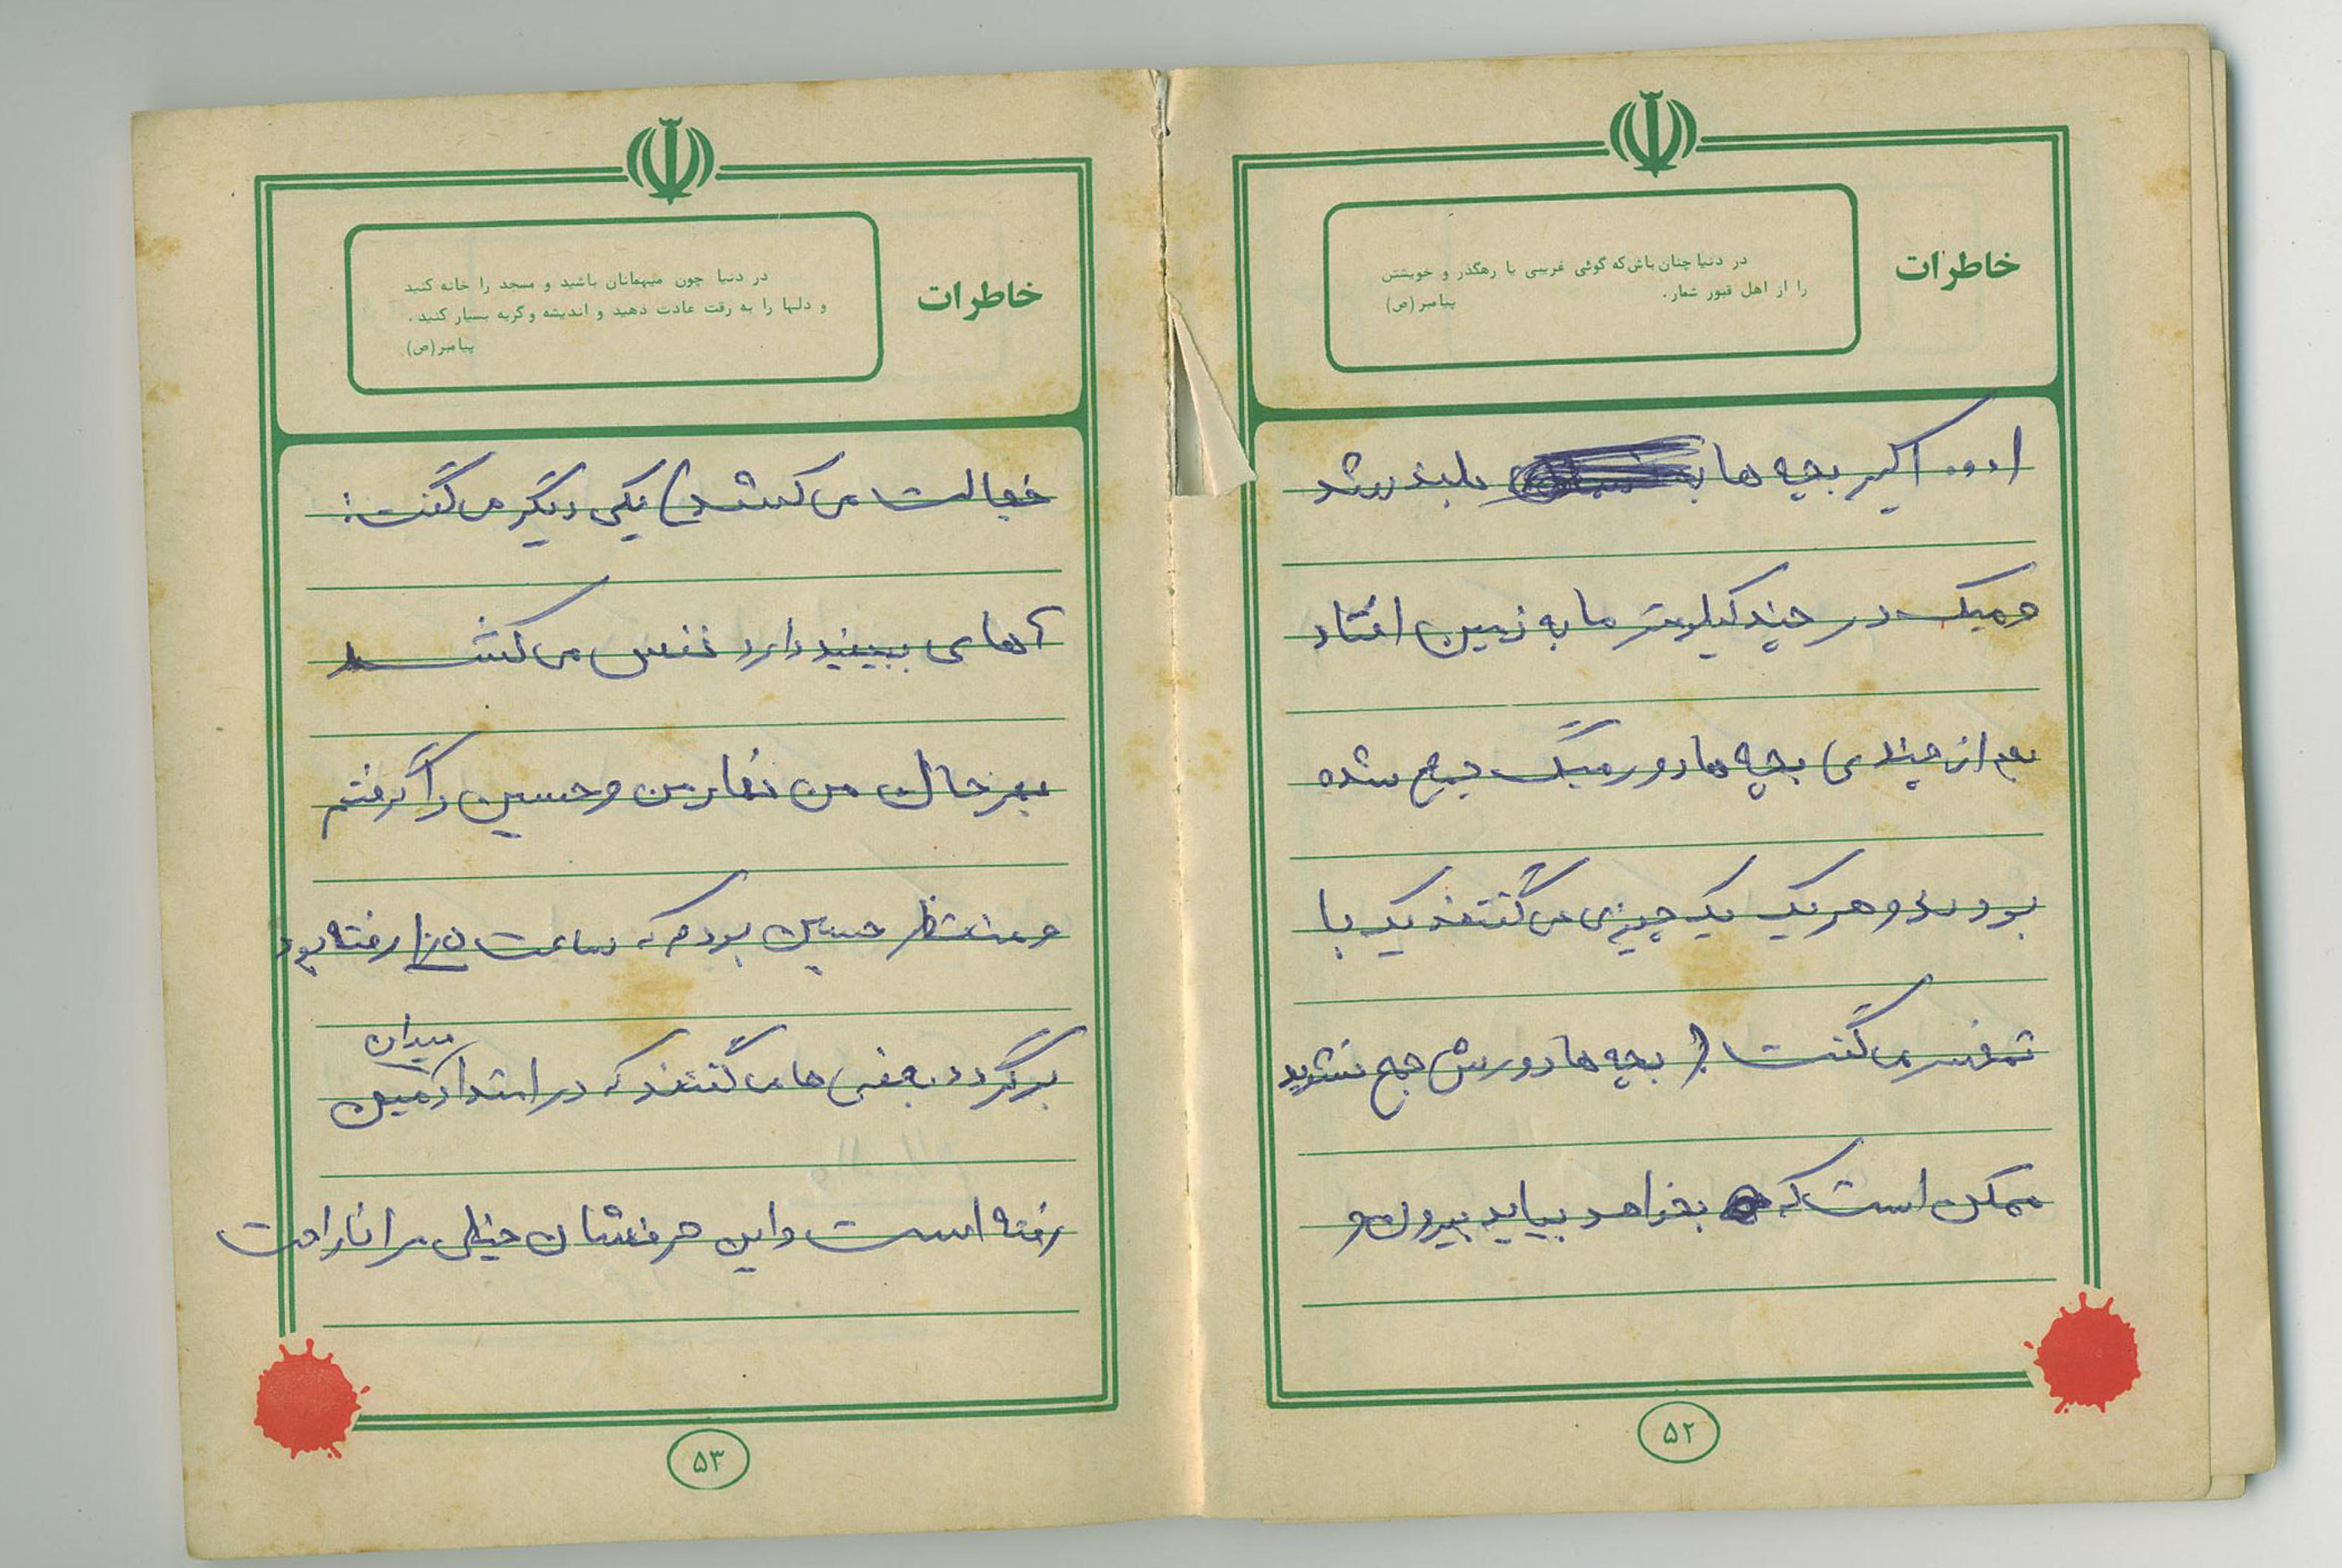 خاطرات
در دنیا چنان باش که گوئی غریبی یا رهگذر و خویشتن
را از اهل قبور شمار.
پیامبر (ص)
ا... اکبر بچه ها بلند شد
و میگ در چند کیلومتر ما به زمین افتاد
بعد از چندی بچه ها دور میگ جمع شده
بودند و هر یک یک چیزی می گفتند یک با
تمسخر می گفت ( بچه ها دورش جمع نشوید
ممکن است که بخواهد بیاید بیرون و
۵۲
خاطرات
در دنیا چون میهمانان باشید و مسجد را خانه کنید
و دلها را به رقت عادت دهید و اندیشه و گریه بسیار کنید.
پیامبر (ص)
خجالت می کشد) یکی دیگر می گفت:
آهای ببینید دارد نفس می کشد
بهر حال من نهار من و حسین را گرفتم
و منتظر حسین بودم که ساعت رفته بود
برگردد بعضی ها می گفتند که در ابتدا میدان
رفته است و این حرفشان خیلی مرا ناراحت
۵۳